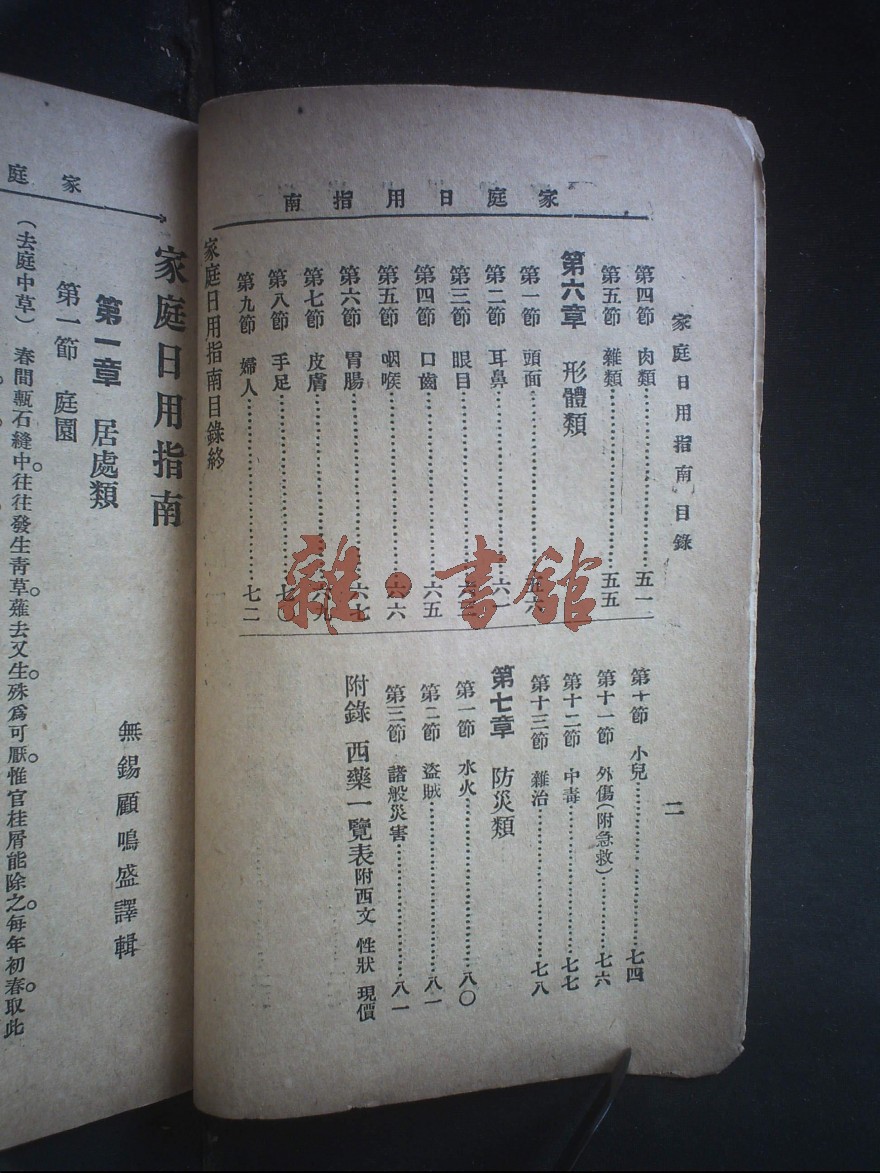 家庭日用指南
家庭日用指南 目錄
二
第四節 肉類……五一
第五節 雜類……五五
第六章 形體類
第一節 頭面……五六
第二節 耳鼻……六一
第三節 眼目……六
第四節 口齒……六五
第五節 咽喉……六六
第六節 胃腸……六七
第七節 皮膚……六九
第八節 手足……七〇
第九節 婦人……七二
家庭日用指南目錄終
第十節 小兒……七四
第十一節 外傷(附急救)……七六
第十二節 中毒……七七
第十三節 雜治……七八
第七章 防災類
第一節 水火……八〇
第二節 盜賊……八一
第三節 諸般災害……八一
附錄 西藥一覽表附西文 性狀 現價
家庭
家庭日用指南
無錫顧鳴盛譯輯
第一章 居處類
第一節 庭園
(去庭中草)春間甎石縫中。往往發生青草。薙去又生。殊爲可厭。惟官桂屑能除之。每年初春。取此
雜·書館